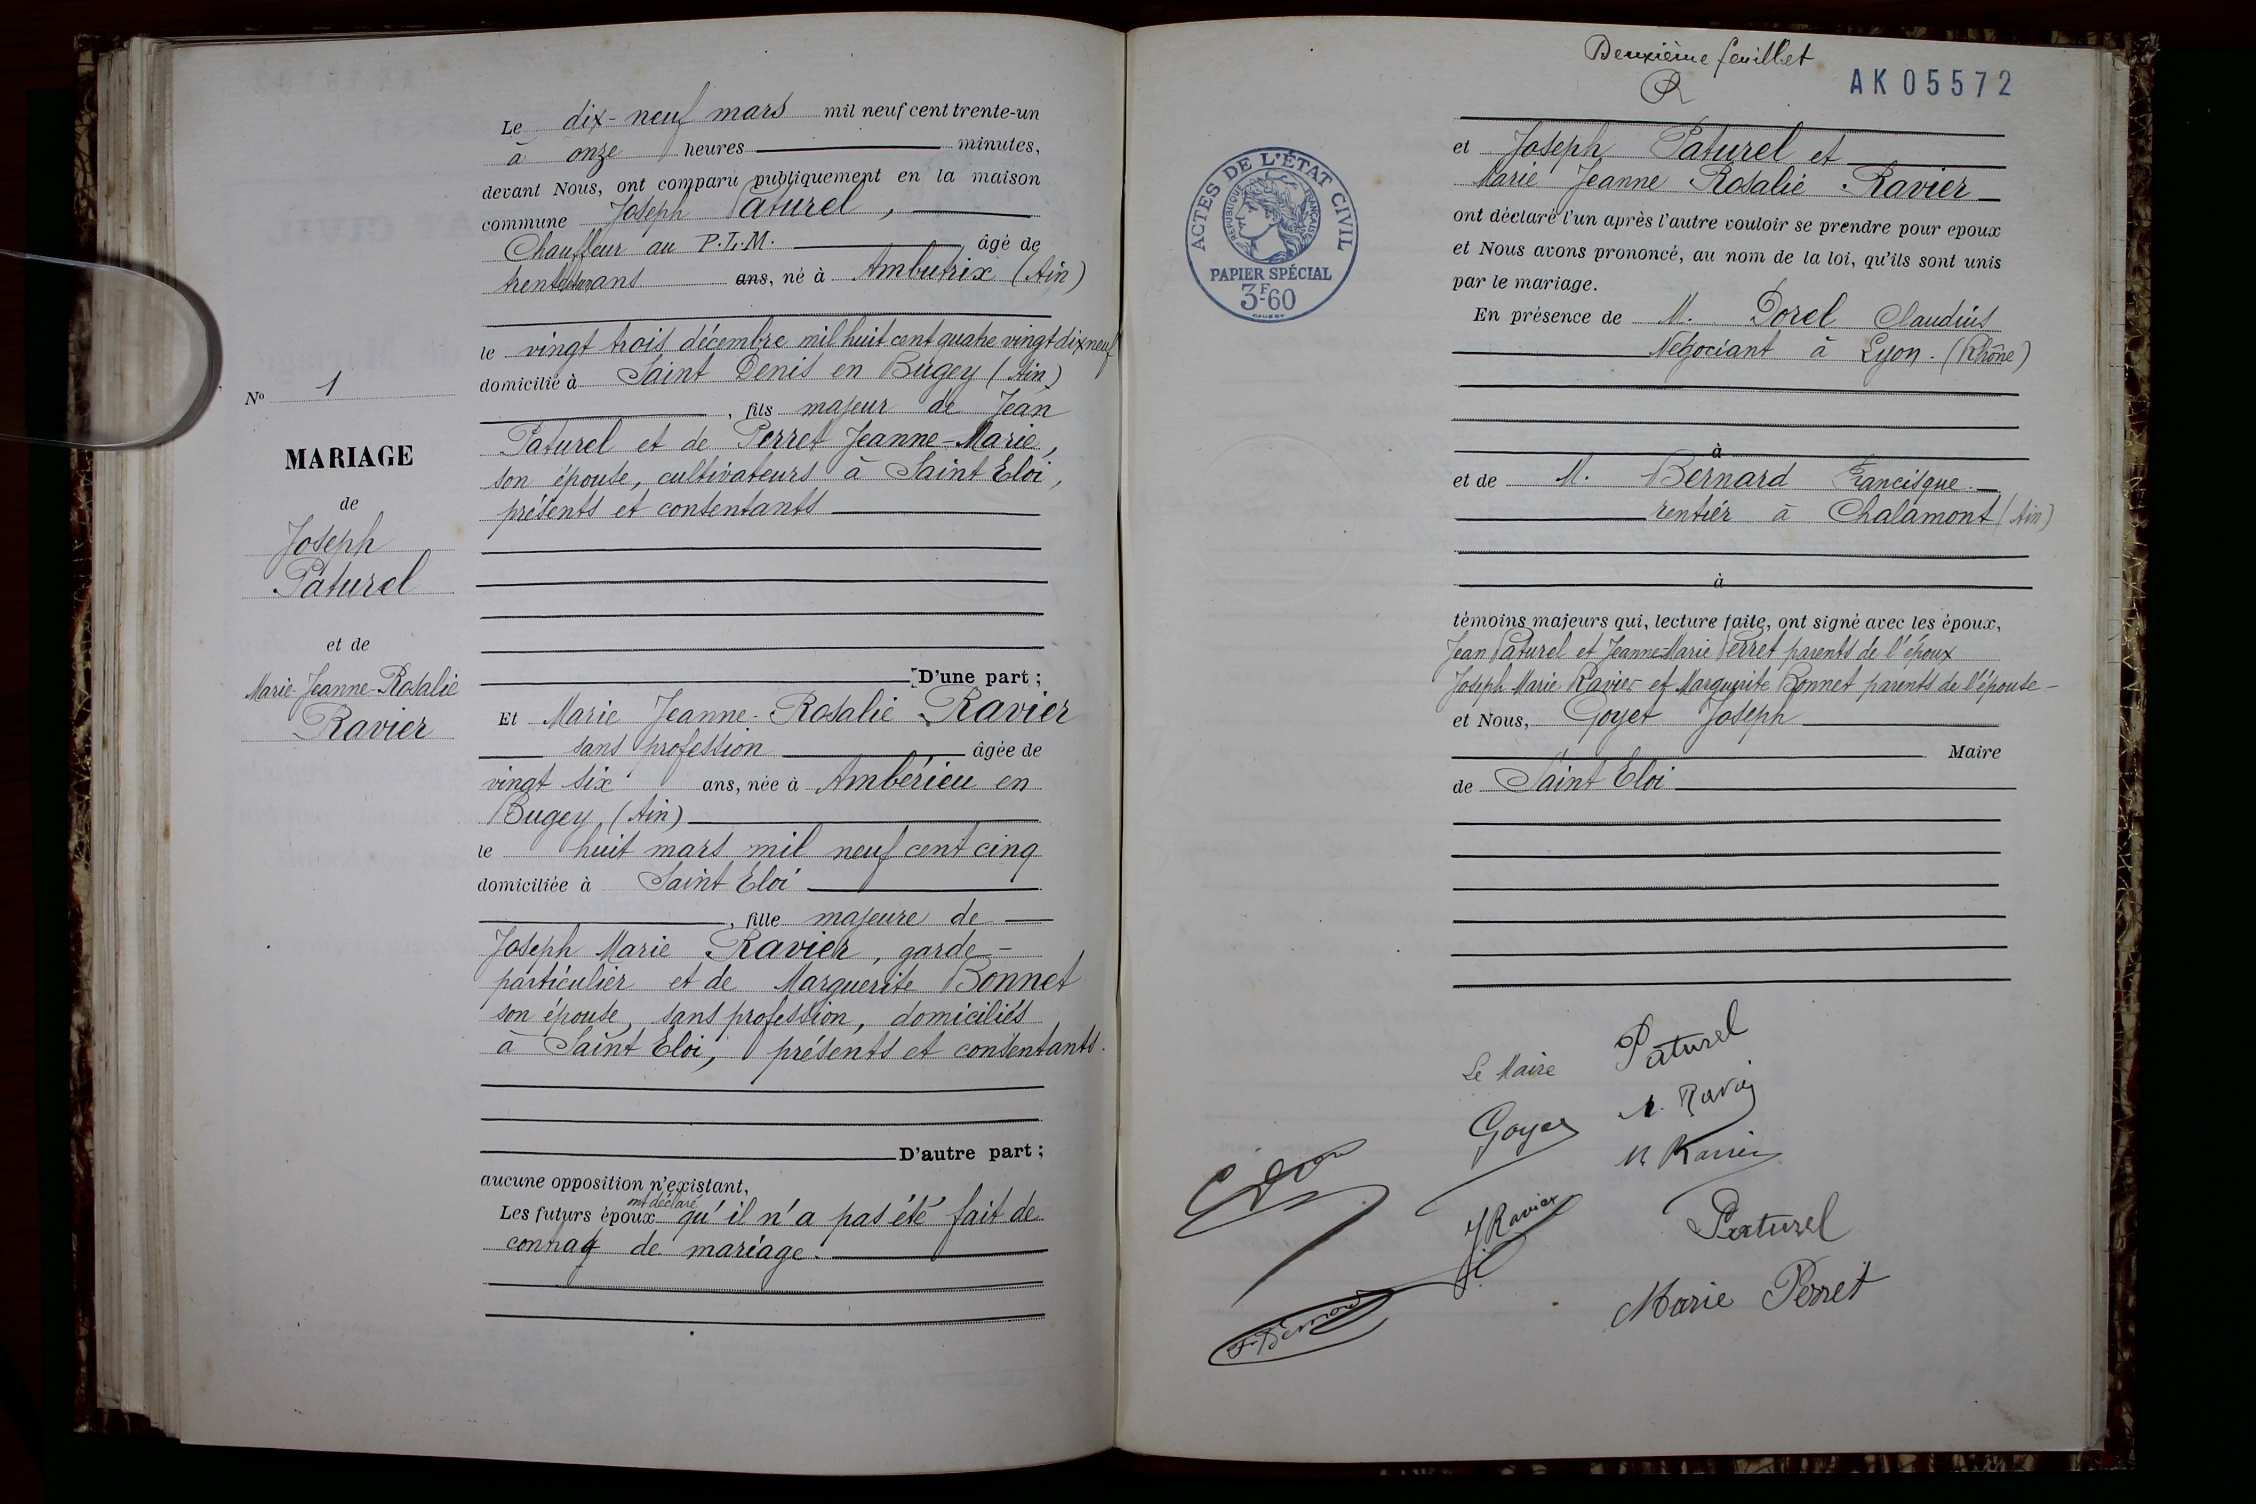 Le dix-neuf mars mil neuf cent trente-un
à onze heures minutes,
devant Nous, ont comparu publiquement en la maison
commune Joseph Paturel,
Chauffeur au P.L.M. âgé de
ans, né à Ambutrix (Ain)
le vingt trois décembre mil huit cent quatre vingt dix neuf
domicilié à Saint Denis en Bugey (Ain)
, fils majeur de Jean
Paturel et de Perret Jeanne-Marie,
son épouse, cultivateurs à Saint Eloi,
présents et consentants
D'une part;
Et Marie Jeanne-Rosalie Ravier
sans profession âgée de
vingt six ans, née à Ambérieu en
Bugey, (Ain)
le huit mars mil neuf cent cinq
domiciliée à Saint Eloi
, fille majeure de
Joseph Marie Ravier, garde-
particulier et de Marguerite Bonnet
son épouse, sans profession, domiciliés
à Saint Eloi, présents et consentants.
D'autre part;
aucune opposition n'existant,
ont déclaré
Les futurs époux qu'il n'a pas été fait de
de mariage.
No 1
MARIAGE
de
Joseph
Paturel
et de
Marie-Jeanne-Rosalie
Ravier
Deuxième feuillet
AK 05572
ACTES DE L'ÉTAT CIVIL
RÉPUBLIQUE FRANÇAISE
PAPIER SPÉCIAL
3F60
et Joseph Paturel et
Marie Jeanne Rosalie Ravier
ont déclaré l'un après l'autre vouloir se prendre pour epoux
et Nous avons prononcé, au nom de la loi, qu'ils sont unis
par le mariage.
En présence de M. Dorel Claudius
Négociant à Lyon. (Rhône)
à
et de M. Bernard Francisque.
rentier à Chalamont (Ain)
à
témoins majeurs qui, lecture faite, ont signé avec les époux,
Jean Paturel et Jeanne-Marie Perret parents de l'époux
Joseph Marie Ravier et Marguerite Bonnet parents de l'épouse
et Nous, Goyet Joseph
Maire
de Saint Eloi
Le Maire Paturel
Goyet
J Ravier
Paturel
Marie Perret